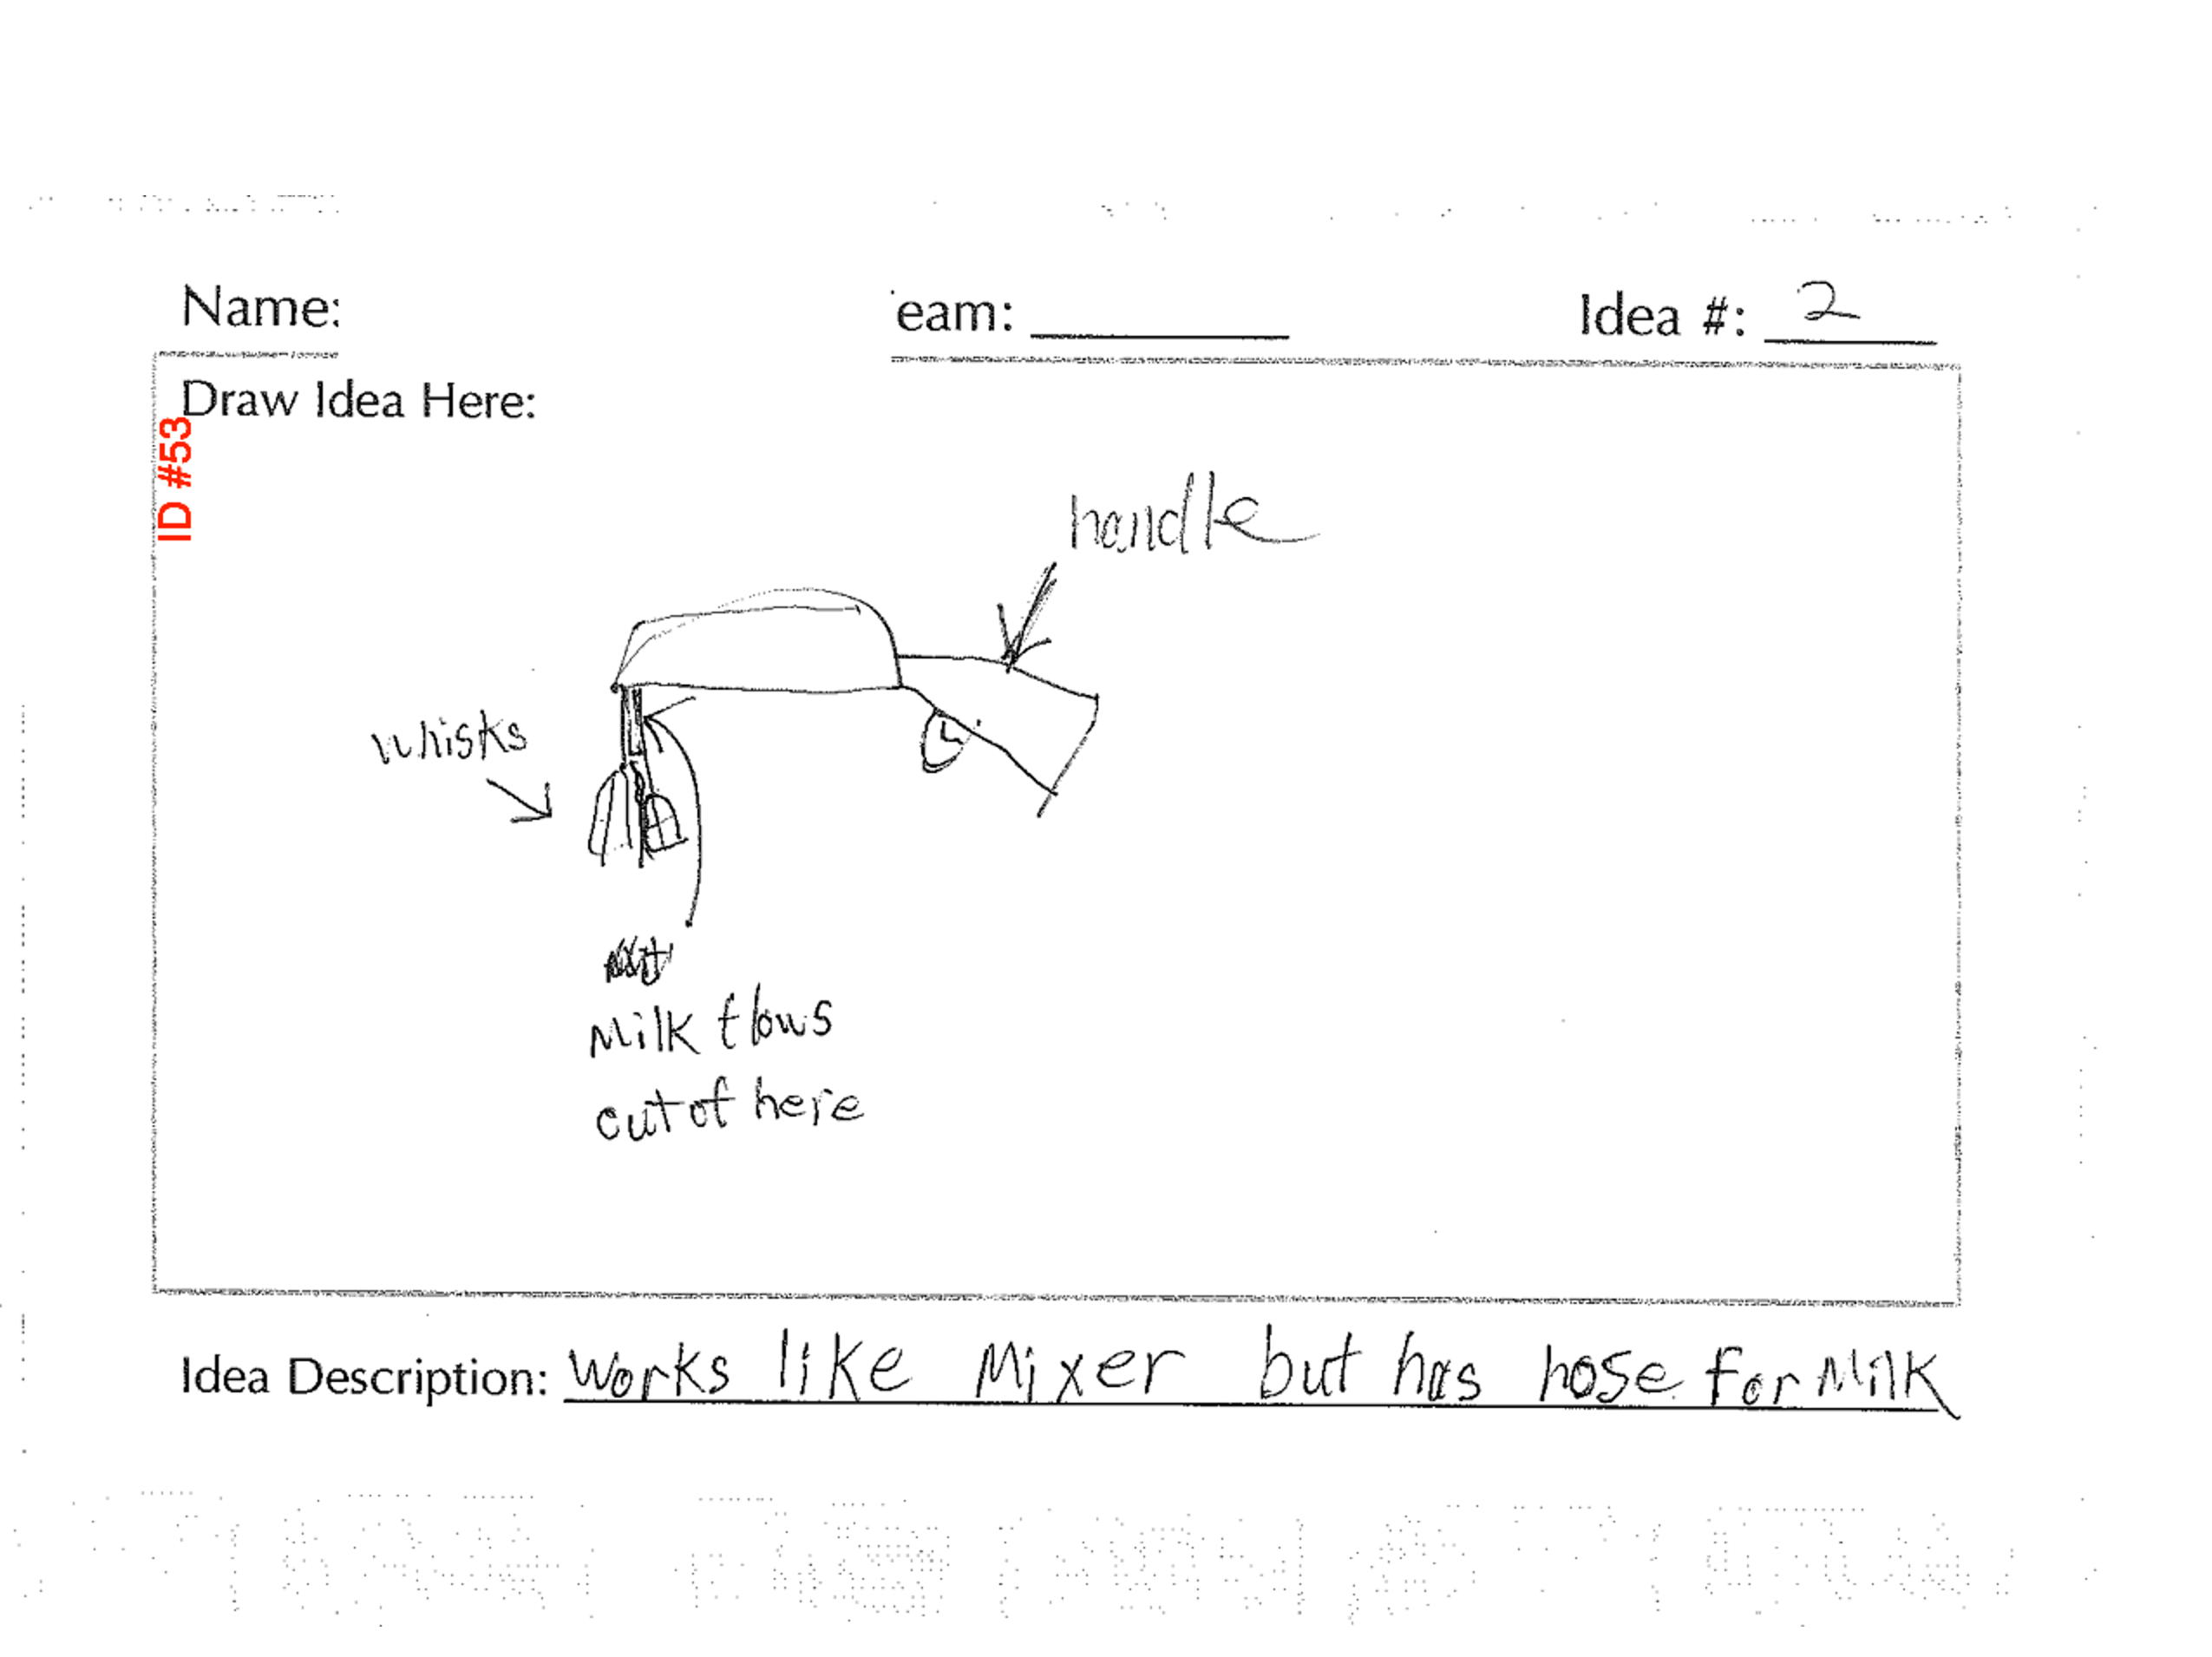 Name:
eam:
Idea #: 2
Draw Idea Here:
ID #53
handle
whisks
Milk flows
out of here
Idea Description: Works like Mixer but has hose for Milk